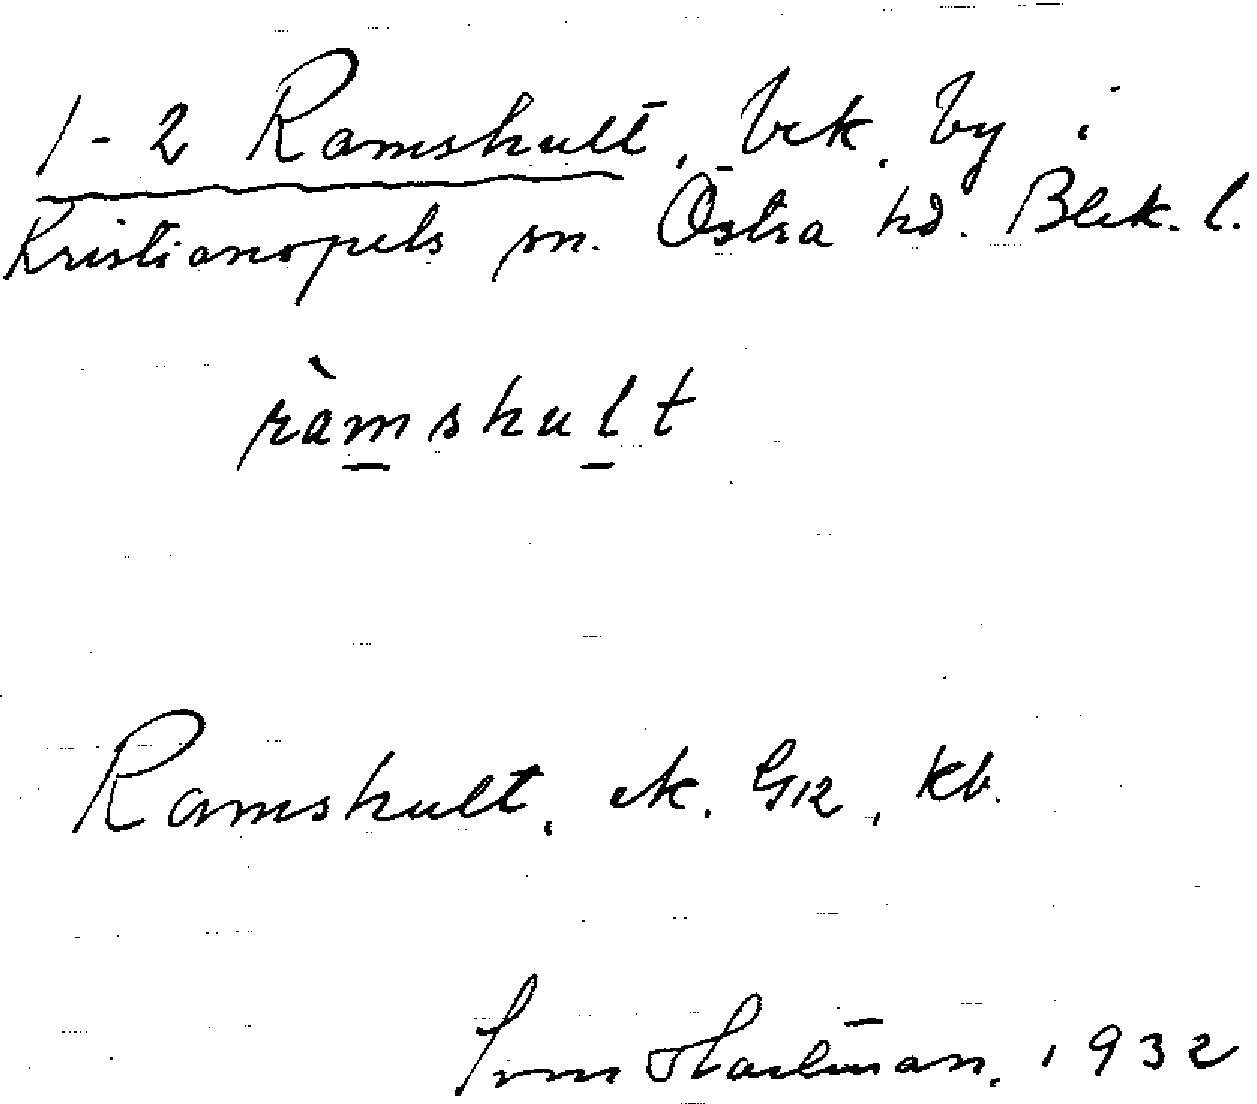 1-2 Ramshult, bek. by i
Kristianopels sn. Östra hd. Blek. l.
ràmshult
Ramshult, ek. GK, kb.
Hartman, 1932